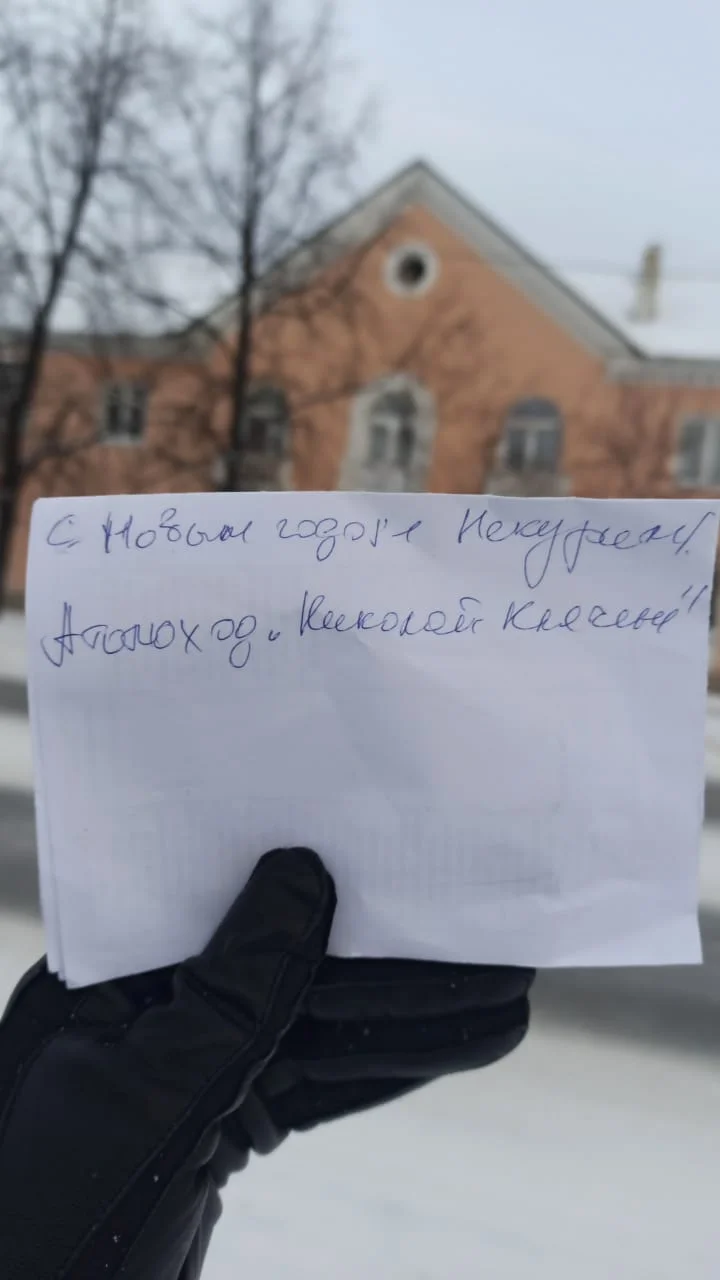 С Новым годом Некурен!
Атомоход "Николай Клячевый"